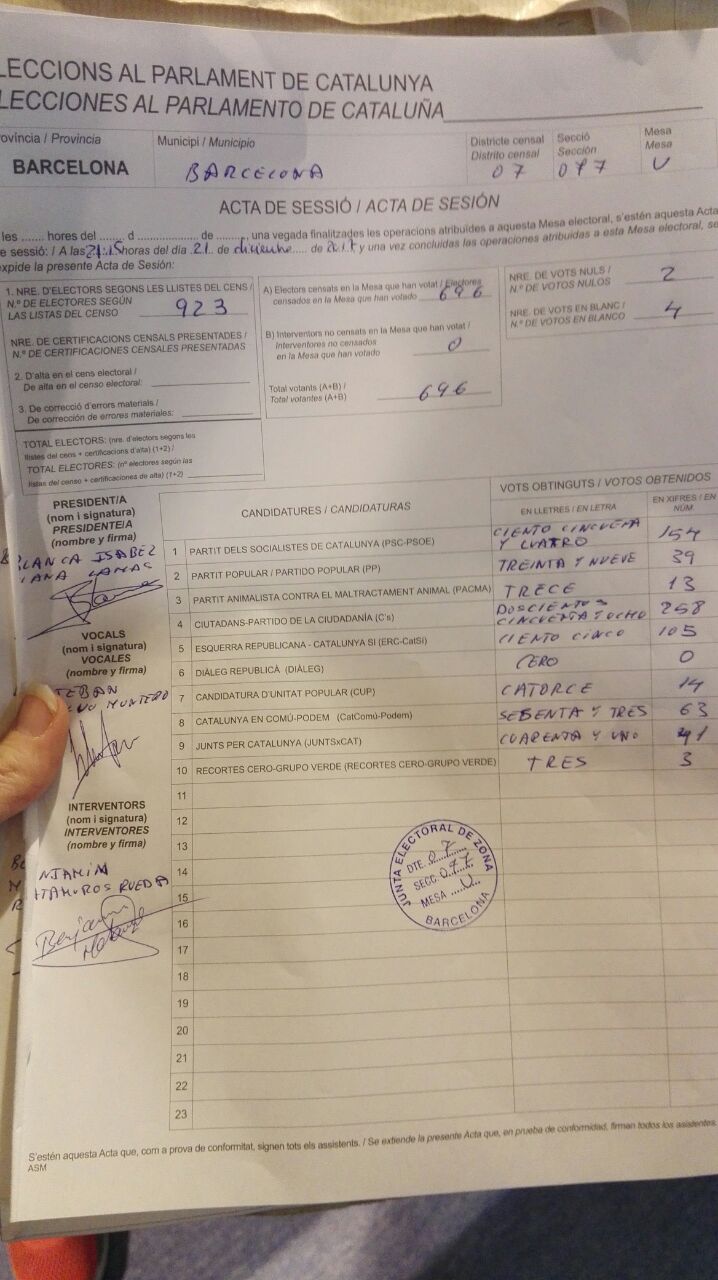 LECCIONS AL PARLAMENT DE CATALUNYA
LECCIONES AL PARLAMENTO DE CATALUÑA
ovíncia / Provincia
BARCELONA
Municipi / Municipio
BARCELONA
Districte censal
Distrito censal
07
Secció
Sección
077
Mesa
Mesa
U
ACTA DE SESSIÓ / ACTA DE SESIÓN
les ........ hores del ....... d .................. de .........., una vegada finalitzades les operacions atribuïdes a aquesta Mesa electoral, s'estén aquesta Acta
e sessió: / A las 21:15 horas del día 21 de diciembre de 2017 y una vez concluidas las operaciones atribuidas a esta Mesa electoral, se
xpide la presente Acta de Sesión:
1. NRE. D'ELECTORS SEGONS LES LLISTES DEL CENS /
N.º DE ELECTORES SEGÚN
LAS LISTAS DEL CENSO
923
NRE. DE CERTIFICACIONS CENSALS PRESENTADES /
N.º DE CERTIFICACIONES CENSALES PRESENTADAS
2. D'alta en el cens electoral /
De alta en el censo electoral:
3. De correcció d'errors materials /
De corrección de errores materiales:
TOTAL ELECTORS: (nre. d'electors segons les
llistes del cens + certificacions d'alta) (1+2) /
TOTAL ELECTORES: (nº electores según las
listas del censo + certificaciones de alta) (1+2)
A) Electors censats en la Mesa que han votat / Electores
censados en la Mesa que han votado
696
B) Interventors no censats en la Mesa que han votat /
Interventores no censados
en la Mesa que han votado
0
Total votants (A+B) /
Total votantes (A+B)
696
NRE. DE VOTS NULS /
N.º DE VOTOS NULOS
2
NRE. DE VOTS EN BLANC /
N.º DE VOTOS EN BLANCO
4
PRESIDENT/A
(nom i signatura)
PRESIDENTE/A
(nombre y firma)
BLANCA ISABEL
LAMAS
VOCALS
(nom i signatura)
VOCALES
(nombre y firma)
TEBAN
MONTERO
INTERVENTORS
(nom i signatura)
INTERVENTORES
(nombre y firma)
NJAMIN
RUEDA
Benjamin
CANDIDATURES / CANDIDATURAS
VOTS OBTINGUTS / VOTOS OBTENIDOS
EN LLETRES / EN LETRA
EN XIFRES / EN
NÚM.
1 PARTIT DELS SOCIALISTES DE CATALUNYA (PSC-PSOE) CIENTO CINCUENTA Y CUATRO 154
2 PARTIT POPULAR / PARTIDO POPULAR (PP) TREINTA Y NUEVE 39
3 PARTIT ANIMALISTA CONTRA EL MALTRACTAMENT ANIMAL (PACMA) TRECE 13
4 CIUTADANS-PARTIDO DE LA CIUDADANÍA (C's) DOSCIENTOS CINCUENTA Y OCHO 258
5 ESQUERRA REPUBLICANA - CATALUNYA SÍ (ERC-CatSí) CIENTO CINCO 105
6 DIÀLEG REPUBLICÀ (DIÀLEG) CERO 0
7 CANDIDATURA D'UNITAT POPULAR (CUP) CATORCE 14
8 CATALUNYA EN COMÚ-PODEM (CatComú-Podem) SESENTA Y TRES 63
9 JUNTS PER CATALUNYA (JUNTSxCAT) CUARENTA Y UNO 41
10 RECORTES CERO-GRUPO VERDE (RECORTES CERO-GRUPO VERDE) TRES 3
11
12
13
14
15
16
17
18
19
20
21
22
23
JUNTA ELECTORAL DE ZONA
DTE. 07
SECC. 077
MESA U
BARCELONA
S'estén aquesta Acta que, com a prova de conformitat, signen tots els assistents. / Se extiende la presente Acta que, en prueba de conformidad, firman todos los asistentes.
ASM